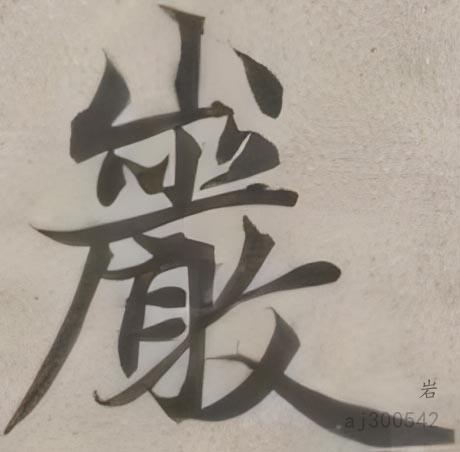 巖
岩
aj300542